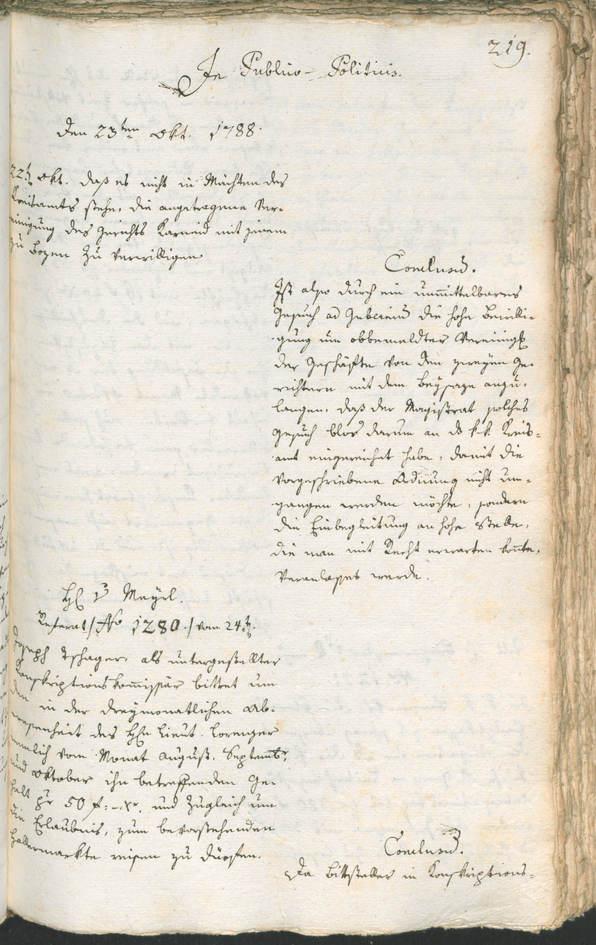 219.
In Publico-Politicis.
Den 23ten Okt. 1788.
22t Okt. daß es nicht in Mächten des
Kreisamts stehe, die angetragene Ver-
einigung des Gerichts Karneid mit jenem
zu Bozen zu bewilligen.
Conclusum.
Ist also durch ein unmittelbares
Gesuch ad Gubernium die hohe Bewilli-
gung um obbemeldter Vereinigung
der Geschäfte von den zweyen Ge-
richtern mit dem Beysaze anzu-
langen, daß der Magistrat solches
Gesuch blos darum an das k.k. Kreis-
amt eingereichet habe, damit die
Vorgeschriebene Ordnung nicht um-
gangen werden möchte, sondern
die Einbegleitung an hohe Stelle,
die man mit Recht erwarten konte,
Veranlasset werde.
H. Meyrl.
Referat /No 1280./ vom 24t
Joseph Tschager, als untergestellter
Konskriptionskommissär bittet um
den in der dreymonatlichen Ab-
wesenheit des Hn Lieut. Lorenger
nemlich vom Monat August, Septemb,
und Oktober ihn betreffenden Ge-
halt pr 50 f:-xr. und zugleich um
die Erlaubnis, zum bevorstehenden
Hallermarkte reisen zu dürfen.
Conclusum.
Da Bittsteller in Konskriptions-